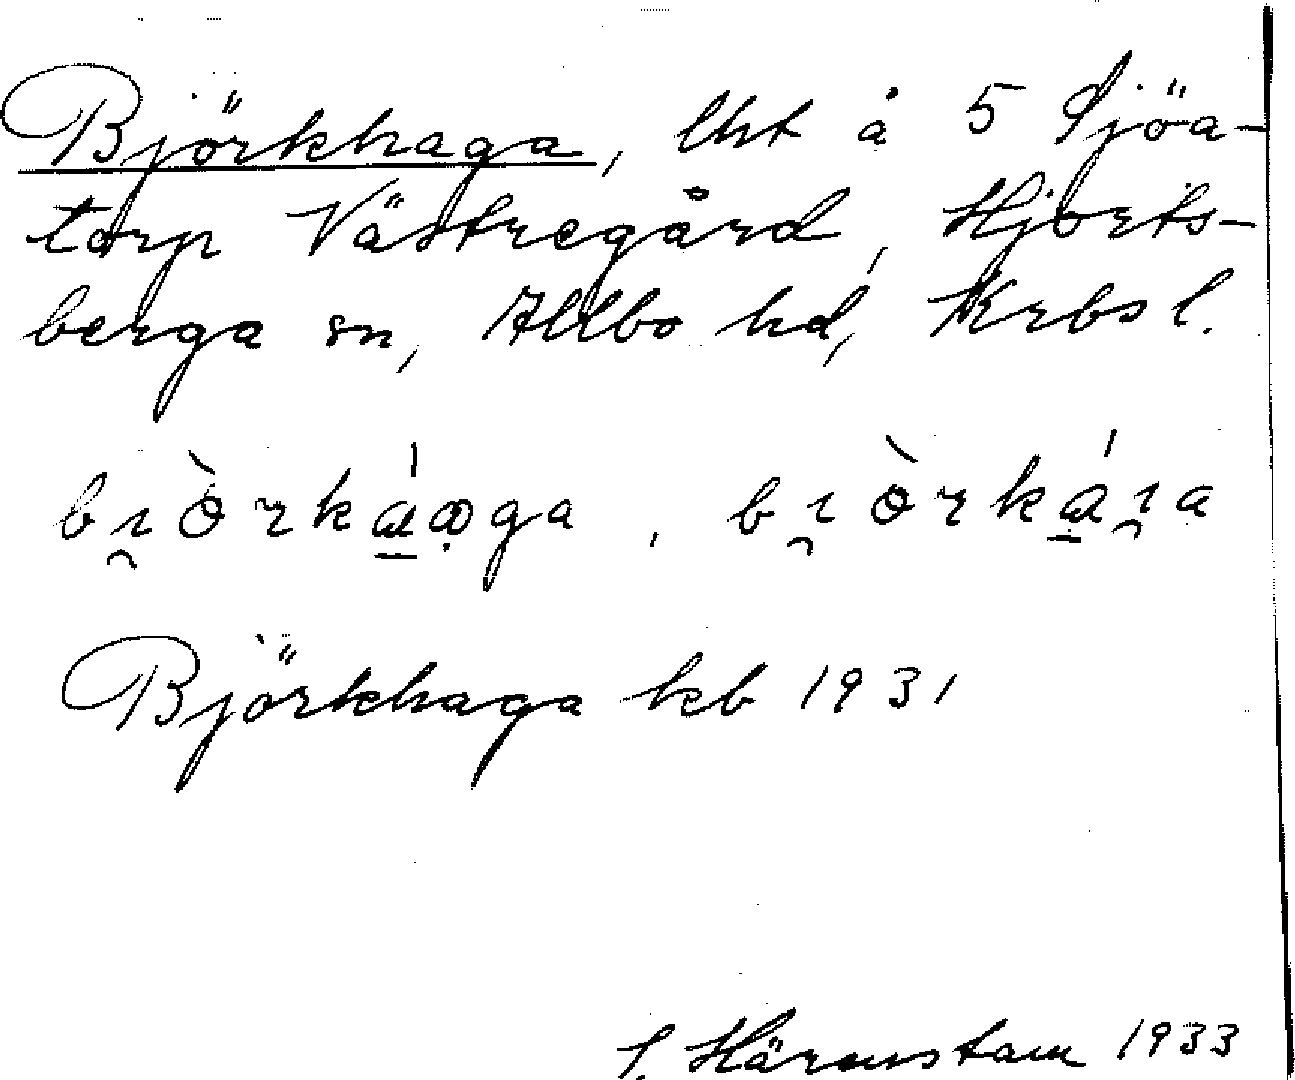 Björkhaga, lht å 5 Sjöa-
torp Västregård, Hjorts-
berga sn, Allbo hd, Krbs l.
bı̯òrkáꝏga, bı̯òrkáı̯a
Björkhaga kb 1931
S. Härmstam 1933